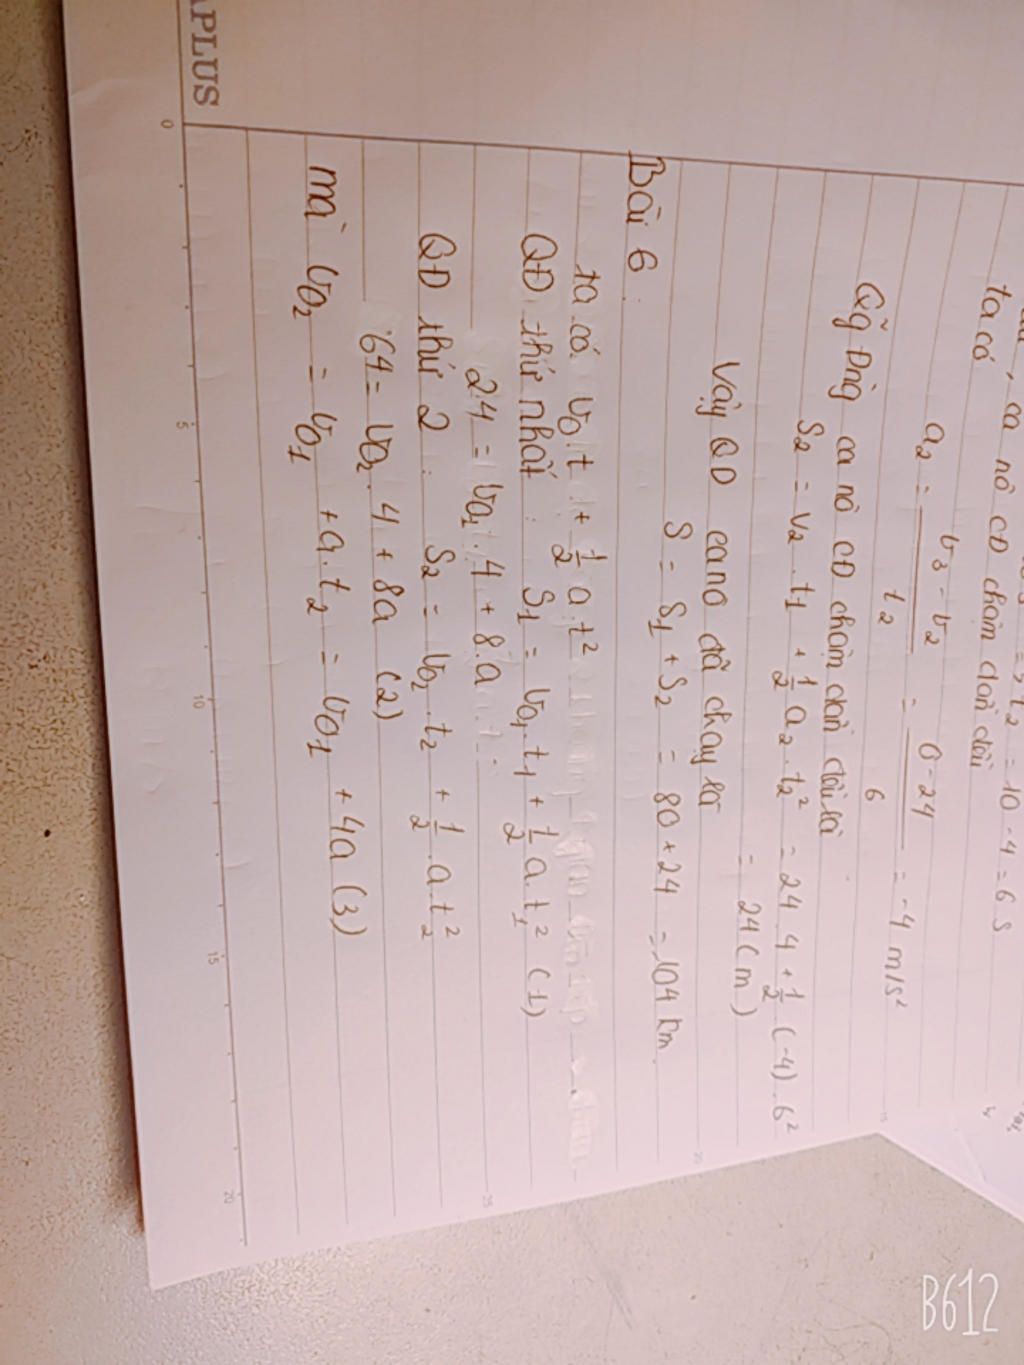 = 10 - 4 = 6 s
ca nô CĐ chậm dần đều
ta có
a2 = v3 - v2 / t2 = 0 - 24 / 6 = -4 m/s²
Qg Đng ca nô CĐ chậm dần đều là
S2 = v2 . t1 + 1/2 a2 . t2² = 24 . 4 + 1/2 (-4) . 6²
= 24 (m)
Vậy QĐ cano đã chạy là
S = S1 + S2 = 80 + 24 = 104 km.
Bài 6 :
ta có v0 . t + 1/2 a . t²
QĐ thứ nhất : S1 = v01 . t1 + 1/2 a . t1² (1)
24 = v01 . 4 + 8.a
QĐ thứ 2 : S2 = v02 . t2 + 1/2 . a . t2²
64 = v02 . 4 + 8a (2)
mà v02 = v01 + a . t2 = v01 + 4a (3)
APLUS
0 5 10 15 20
B612